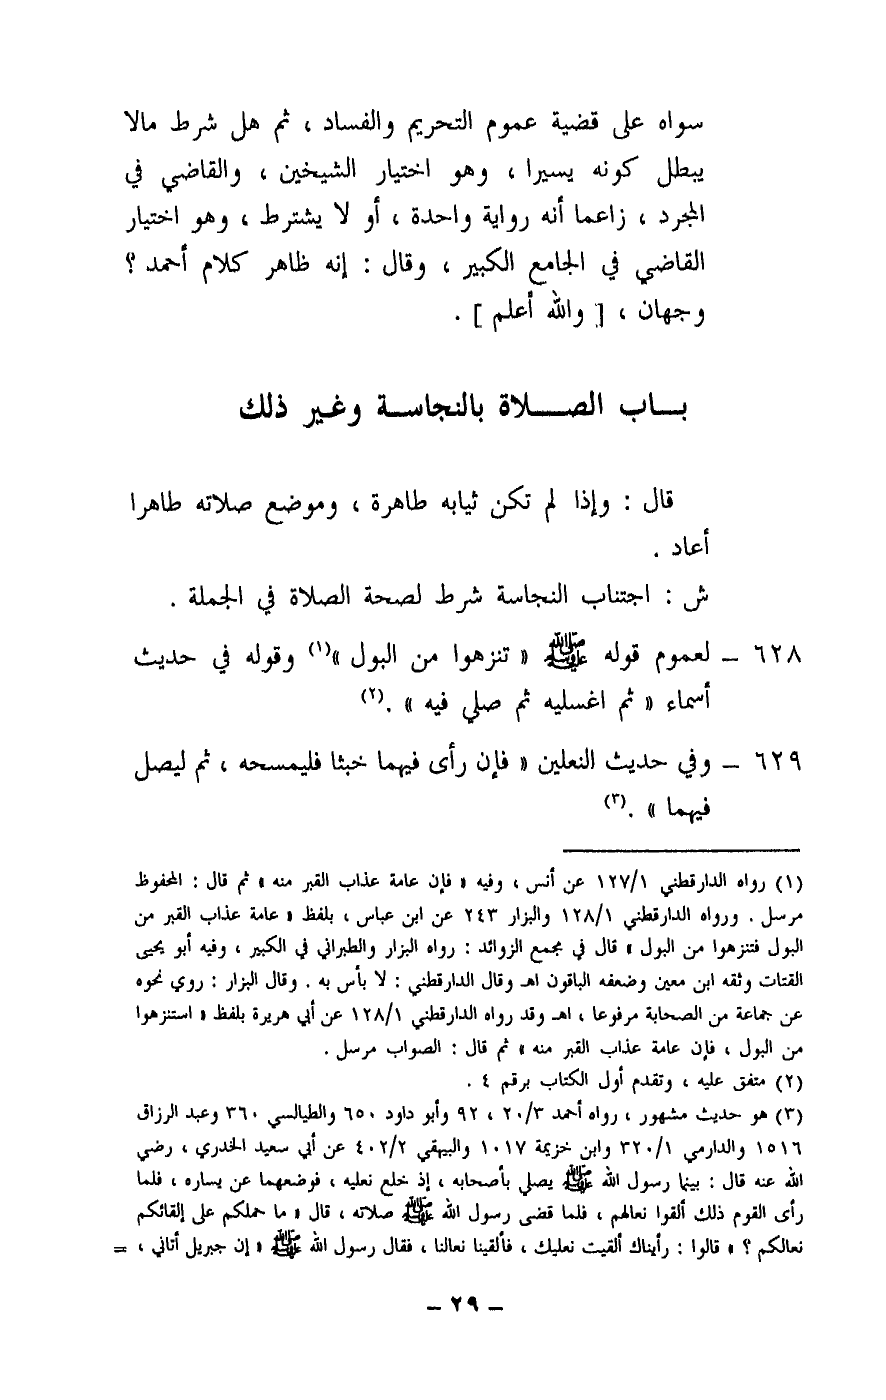 سواه على قضية عموم التحريم والفساد ، ثم هل شرط مالا
يبطل كونه يسيرا ، وهو اختيار الشيخين ، والقاضي في
المجرد ، زاعما أنه رواية واحدة ، أو لا يشترط ، وهو اختيار
القاضي في الجامع الكبير ، وقال : إنه ظاهر كلام أحمد ؟
وجهان ، [ والله أعلم ] .
بـــاب الصـــلاة بالنجاســة وغـير ذلك
قال : وإذا لم تكن ثيابه طاهرة ، وموضع صلاته طاهرا
أعاد .
ش : اجتناب النجاسة شرط لصحة الصلاة في الجملة .
٦٢٨ – لعموم قوله ﷺ « تنزهوا من البول »(١) وقوله في حديث
أسماء « ثم اغسليه ثم صلي فيه » .(٢)
٦٢٩ – وفي حديث النعلين « فإن رأى فيهما خبثا فليمسحه ، ثم ليصل
فيهما » .(٣)
(١) رواه الدارقطني ١٢٧/١ عن أنس ، وفيه « فإن عامة عذاب القبر منه » ثم قال : المحفوظ
مرسل . ورواه الدارقطني ١٢٨/١ والبزار ٢٤٣ عن ابن عباس ، بلفظ « عامة عذاب القبر من
البول فتنزهوا من البول » قال في مجمع الزوائد : رواه البزار والطبراني في الكبير ، وفيه أبو يحيى
القتات وثقه ابن معين وضعفه الباقون اهـ وقال الدارقطني : لا بأس به . وقال البزار : روي نحوه
عن جماعة من الصحابة مرفوعا ، اهـ وقد رواه الدارقطني ١٢٨/١ عن أبي هريرة بلفظ « استنزهوا
من البول ، فإن عامة عذاب القبر منه » ثم قال : الصواب مرسل .
(٢) متفق عليه ، وتقدم أول الكتاب برقم ٤ .
(٣) هو حديث مشهور ، رواه أحمد ٢٠/٣ ، ٩٢ وأبو داود ٦٥٠ والطيالسي ٣٦٠ وعبد الرزاق
١٥١٦ والدارمي ٣٢٠/١ وابن خزيمة ١٠١٧ والبيهقي ٤٠٢/٢ عن أبي سعيد الخدري ، رضي
الله عنه قال : بينما رسول الله ﷺ يصلي بأصحابه ، إذ خلع نعليه ، فوضعهما عن يساره ، فلما
رأى القوم ذلك ألقوا نعالهم ، فلما قضى رسول الله ﷺ صلاته ، قال « ما حملكم على إلقائكم
نعالكم ؟ » قالوا : رأيناك ألقيت نعليك ، فألقينا نعالنا ، فقال رسول الله ﷺ « إن جبريل أتاني ، =
– ٢٩ –